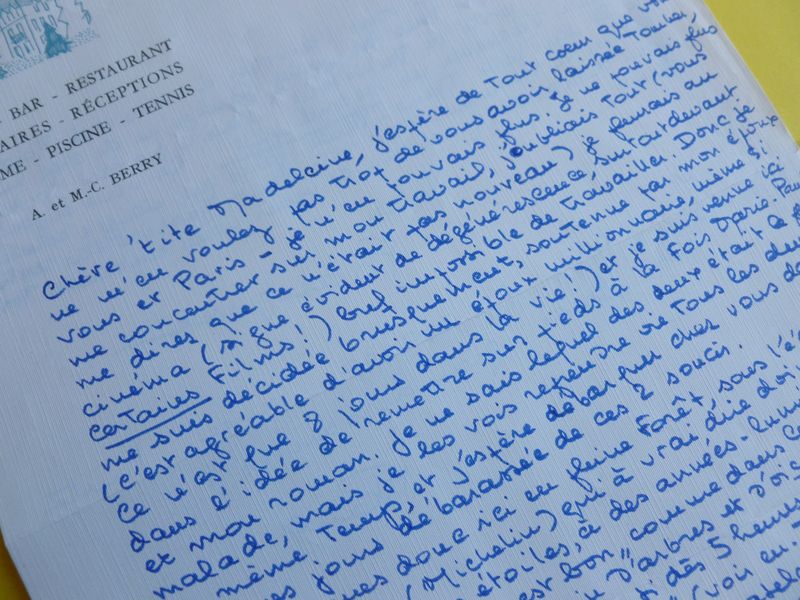 BAR - RESTAURANT
AIRES - RÉCEPTIONS
ME - PISCINE - TENNIS
A. et M.-C. BERRY
Chère 'tite Madeleine, j'espère de tout coeur que vous
ne m'en voulez pas trop de vous avoir laissée tomber,
vous et Paris - je n'en pouvais plus. Je ne pouvais plus
me concentrer sur mon travail, j'oubliais tout (vous
me direz que ce n'était pas nouveau) je pensais au
cinéma (signe évident de dégénérescence, surtout devant
certains films!) bref impossible de travailler. Donc je
me suis décidée brusquement, soutenue par mon époux
(c'est agréable d'avoir un époux millionnaire, même si
ce n'est que 8 jours dans la vie!) et je suis venue ici
dans l'idée de remettre sur pieds à la fois Marie-Pau
et mon roman. Je ne sais lequel des deux était le
malade, mais je les vois reprendre vie tous les deux
même temps, et j'espère débarquer chez vous da
jours débarassée de ces 2 soucis.
donc ici en pleine forêt, sous l'é
(Michelin) qui à vrai dire doi
étoiles, à des années-lumi
est bon" comme dans
d'arbres et d'ois
dès 5 heures
(voir en